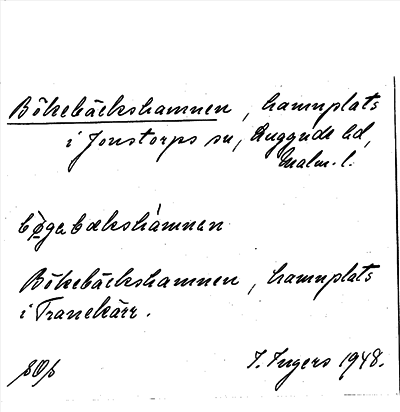 Bökebäckshamnen, hamnplats
i Jonstorps sn, Luggude hd,
Malm. l.
bø̀gabækshámnən
Bökebäckshamnen, hamnplats
i Tranekärr.
I. Ingers 1948.